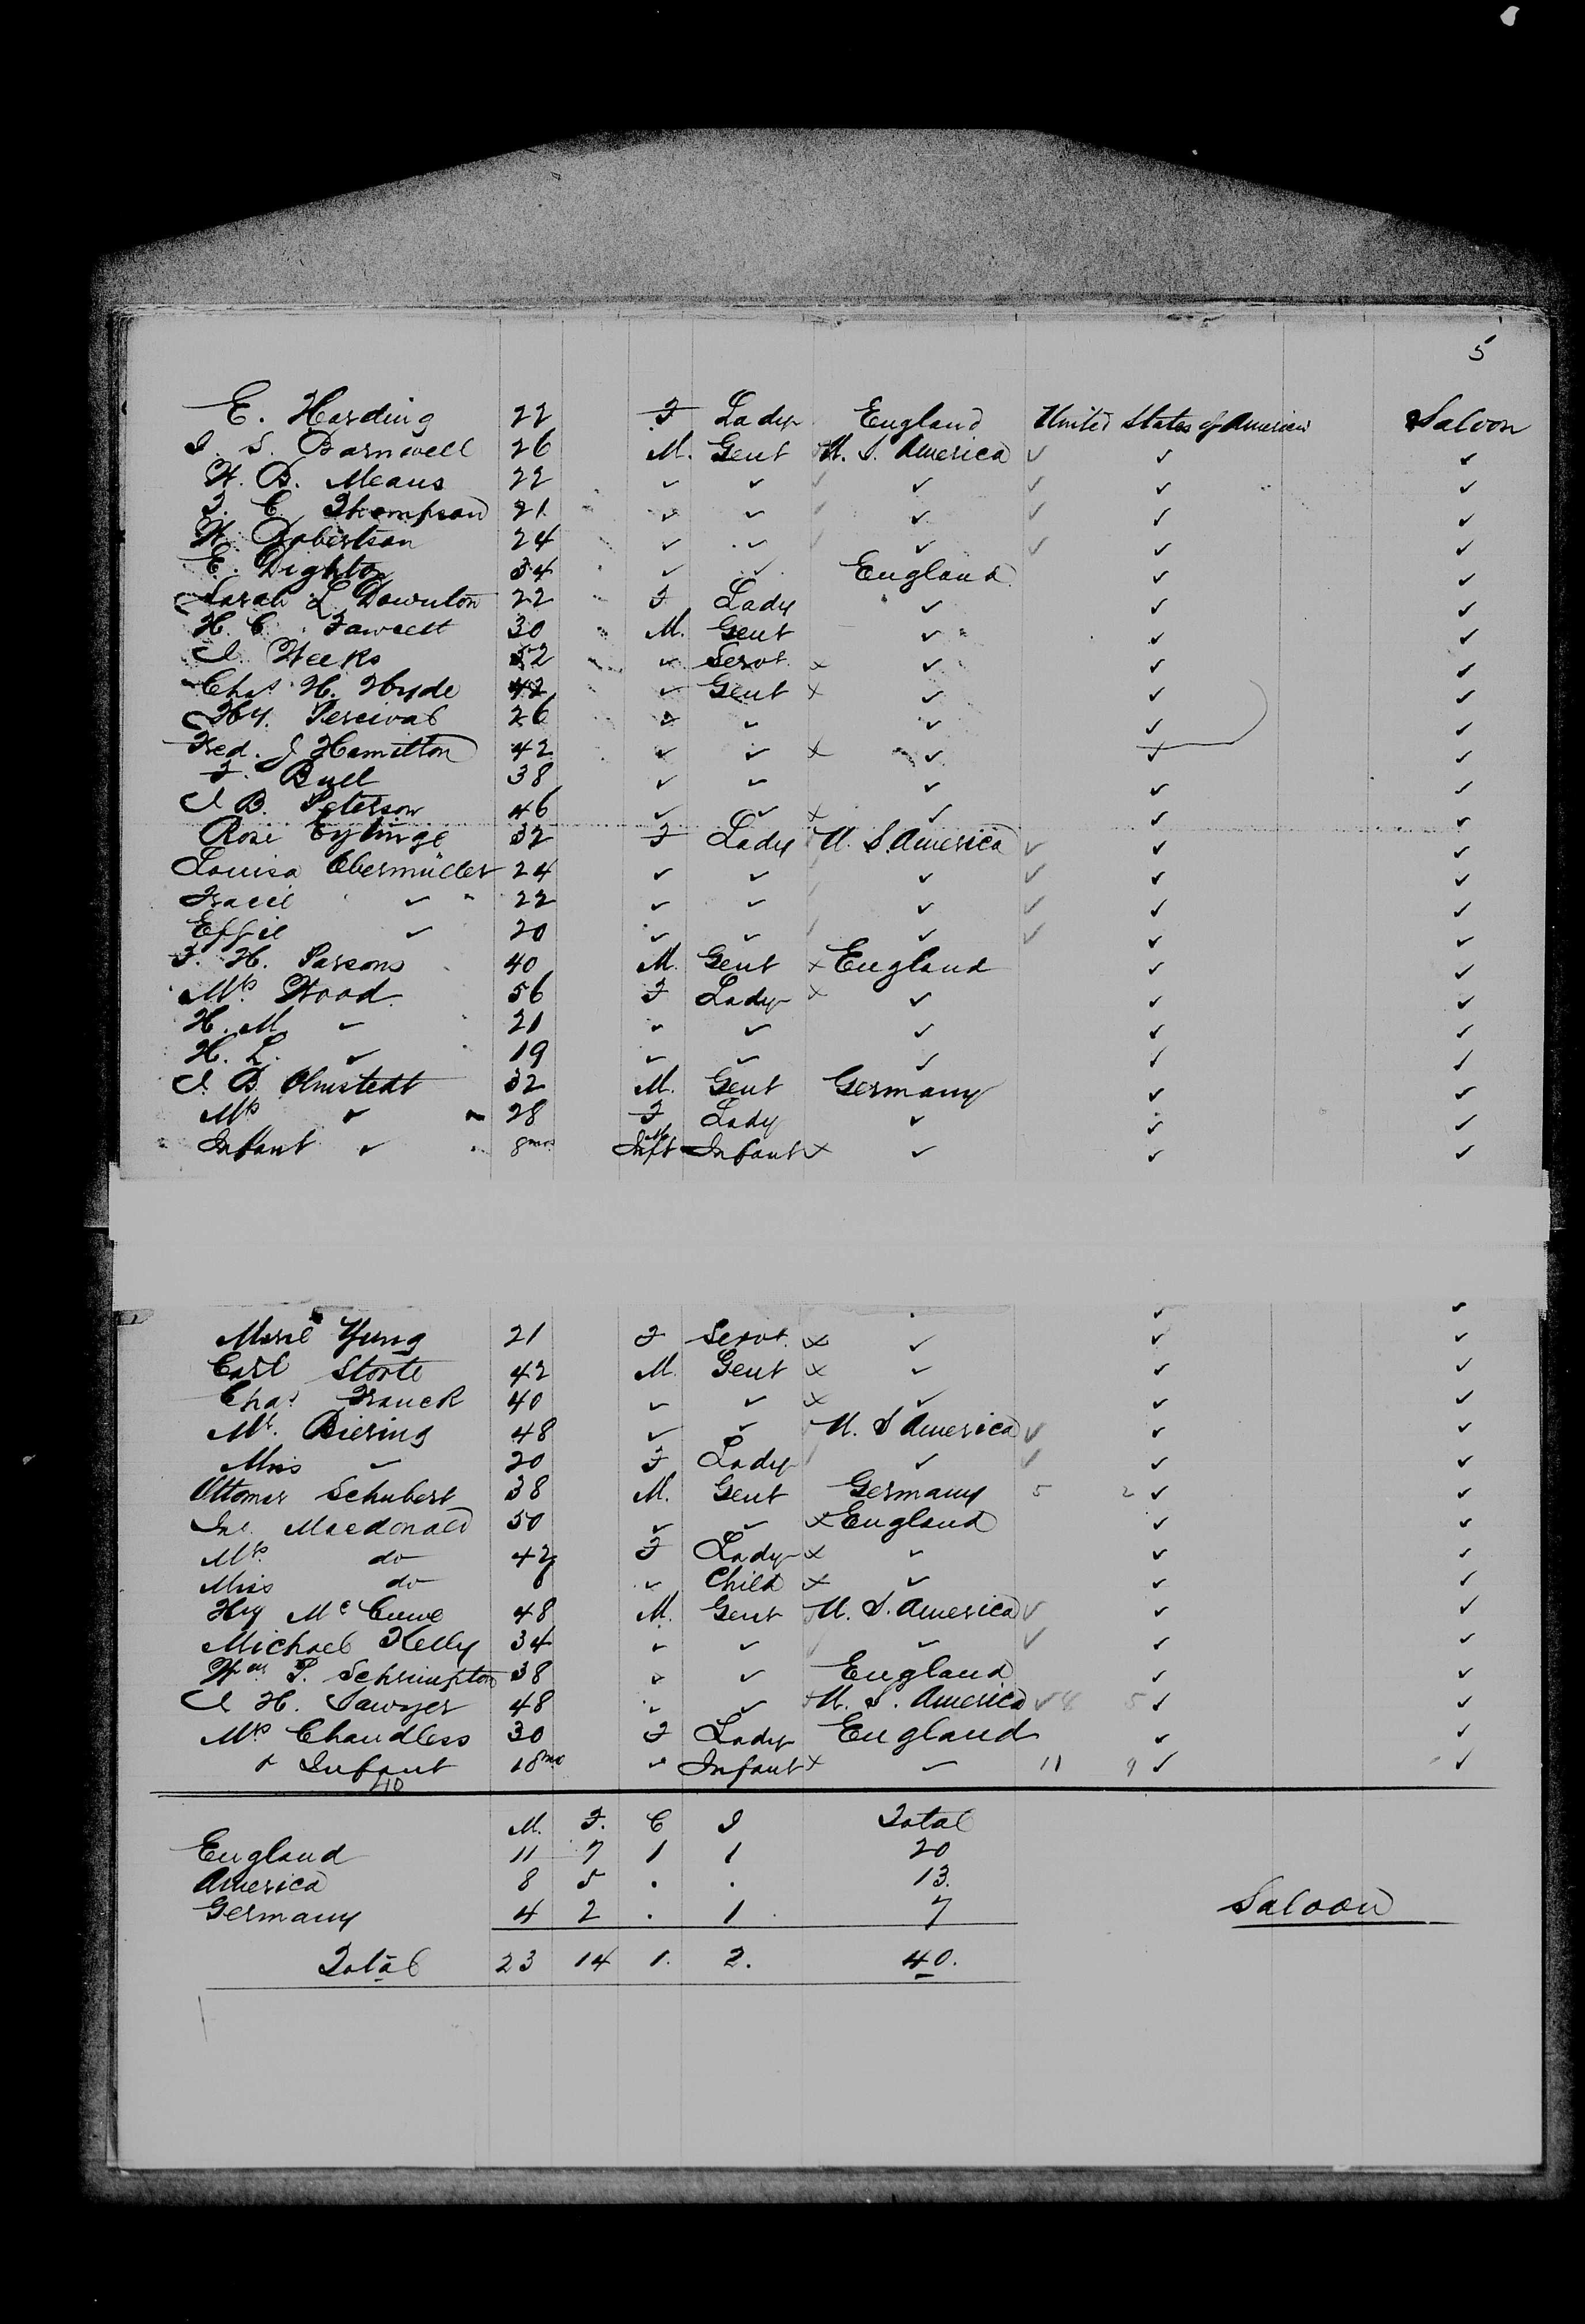 5
E. Harding 22 F Lady England United States of America Saloon
J. S. Barnwell 26 M. Gent U. S. America ✓ ✓ ✓
W. B. Means 22 ✓ ✓ ✓ ✓ ✓ ✓
T. C. Thompson 21 ✓ ✓ ✓ ✓ ✓ ✓
W. Robertson 24 ✓ ✓ ✓ ✓ ✓ ✓
E. Dighton 34 ✓ ✓ England ✓ ✓
Sarah L Downton 22 F Lady ✓ ✓ ✓
H. C. Fawcett 30 M. Gent ✓ ✓ ✓
J. Weeks 52 ✓ Servt. x ✓ ✓ ✓
Chas H. Hyde 42 ✓ Gent x ✓ ✓ ✓
Hy. Percival 26 ✓ ✓ ✓ ✓ ✓
Fred. J Hamilton 42 ✓ ✓ x ✓ ✓ ✓
F. Bull 38 ✓ ✓ ✓ ✓ ✓
J B. Peterson 46 ✓ ✓ x ✓ ✓ ✓
Rose Eytinge 32 F Lady U. S. America ✓ ✓ ✓
Louisa Obermüller 24 ✓ ✓ ✓ ✓ ✓ ✓
✓ 22 ✓ ✓ ✓ ✓ ✓ ✓
Effie ✓ 20 ✓ ✓ ✓ ✓ ✓ ✓
T. H. Parsons 40 M. Gent x England ✓ ✓
Mrs. Wood 56 F Lady x ✓ ✓ ✓
H. M. ✓ 21 ✓ ✓ ✓ ✓ ✓
H. L. ✓ 19 ✓ ✓ ✓ ✓ ✓
J. B. Olmstedt 32 M. Gent Germany ✓ ✓
Mrs ✓ 28 F Lady ✓ ✓ ✓
Infant ✓ 8 mos Inft Infant x ✓ ✓ ✓
✓ ✓
Marie Yung 21 F Servt. x ✓ ✓ ✓
Carl Storte 42 M. Gent x ✓ ✓ ✓
Chas Franck 40 ✓ ✓ x ✓ ✓ ✓
Mr. Biering 48 ✓ ✓ U. S America ✓ ✓ ✓
Miss ✓ 20 F Lady ✓ ✓ ✓ ✓
Ottomar Schubert 38 M. Gent Germany 5 2 ✓ ✓
Jno. Macdonald 50 ✓ ✓ x England ✓ ✓
Mrs. do 42 F Lady x ✓ ✓ ✓
Miss do 8 ✓ Child x ✓ ✓ ✓
Hy Mc Cune 48 M. Gent U. S. America ✓ ✓ ✓
Michael Kelly 34 ✓ ✓ ✓ ✓ ✓ ✓
Wm P. Schrimpton 38 ✓ ✓ England ✓ ✓
J H. Sawyer 48 ✓ ✓ U. S. America ✓ 5 ✓ ✓
Mrs Chandless 30 F Lady England ✓ ✓
✓ Infant 10 mo ✓ Infant x ✓ 11 9 ✓ ✓
40
M. F. C I Total
England 11 7 1 1 20
America 8 5 . . 13.
Germany 4 2 . 1 7
Saloon
Total 23 14 1. 2. 40.